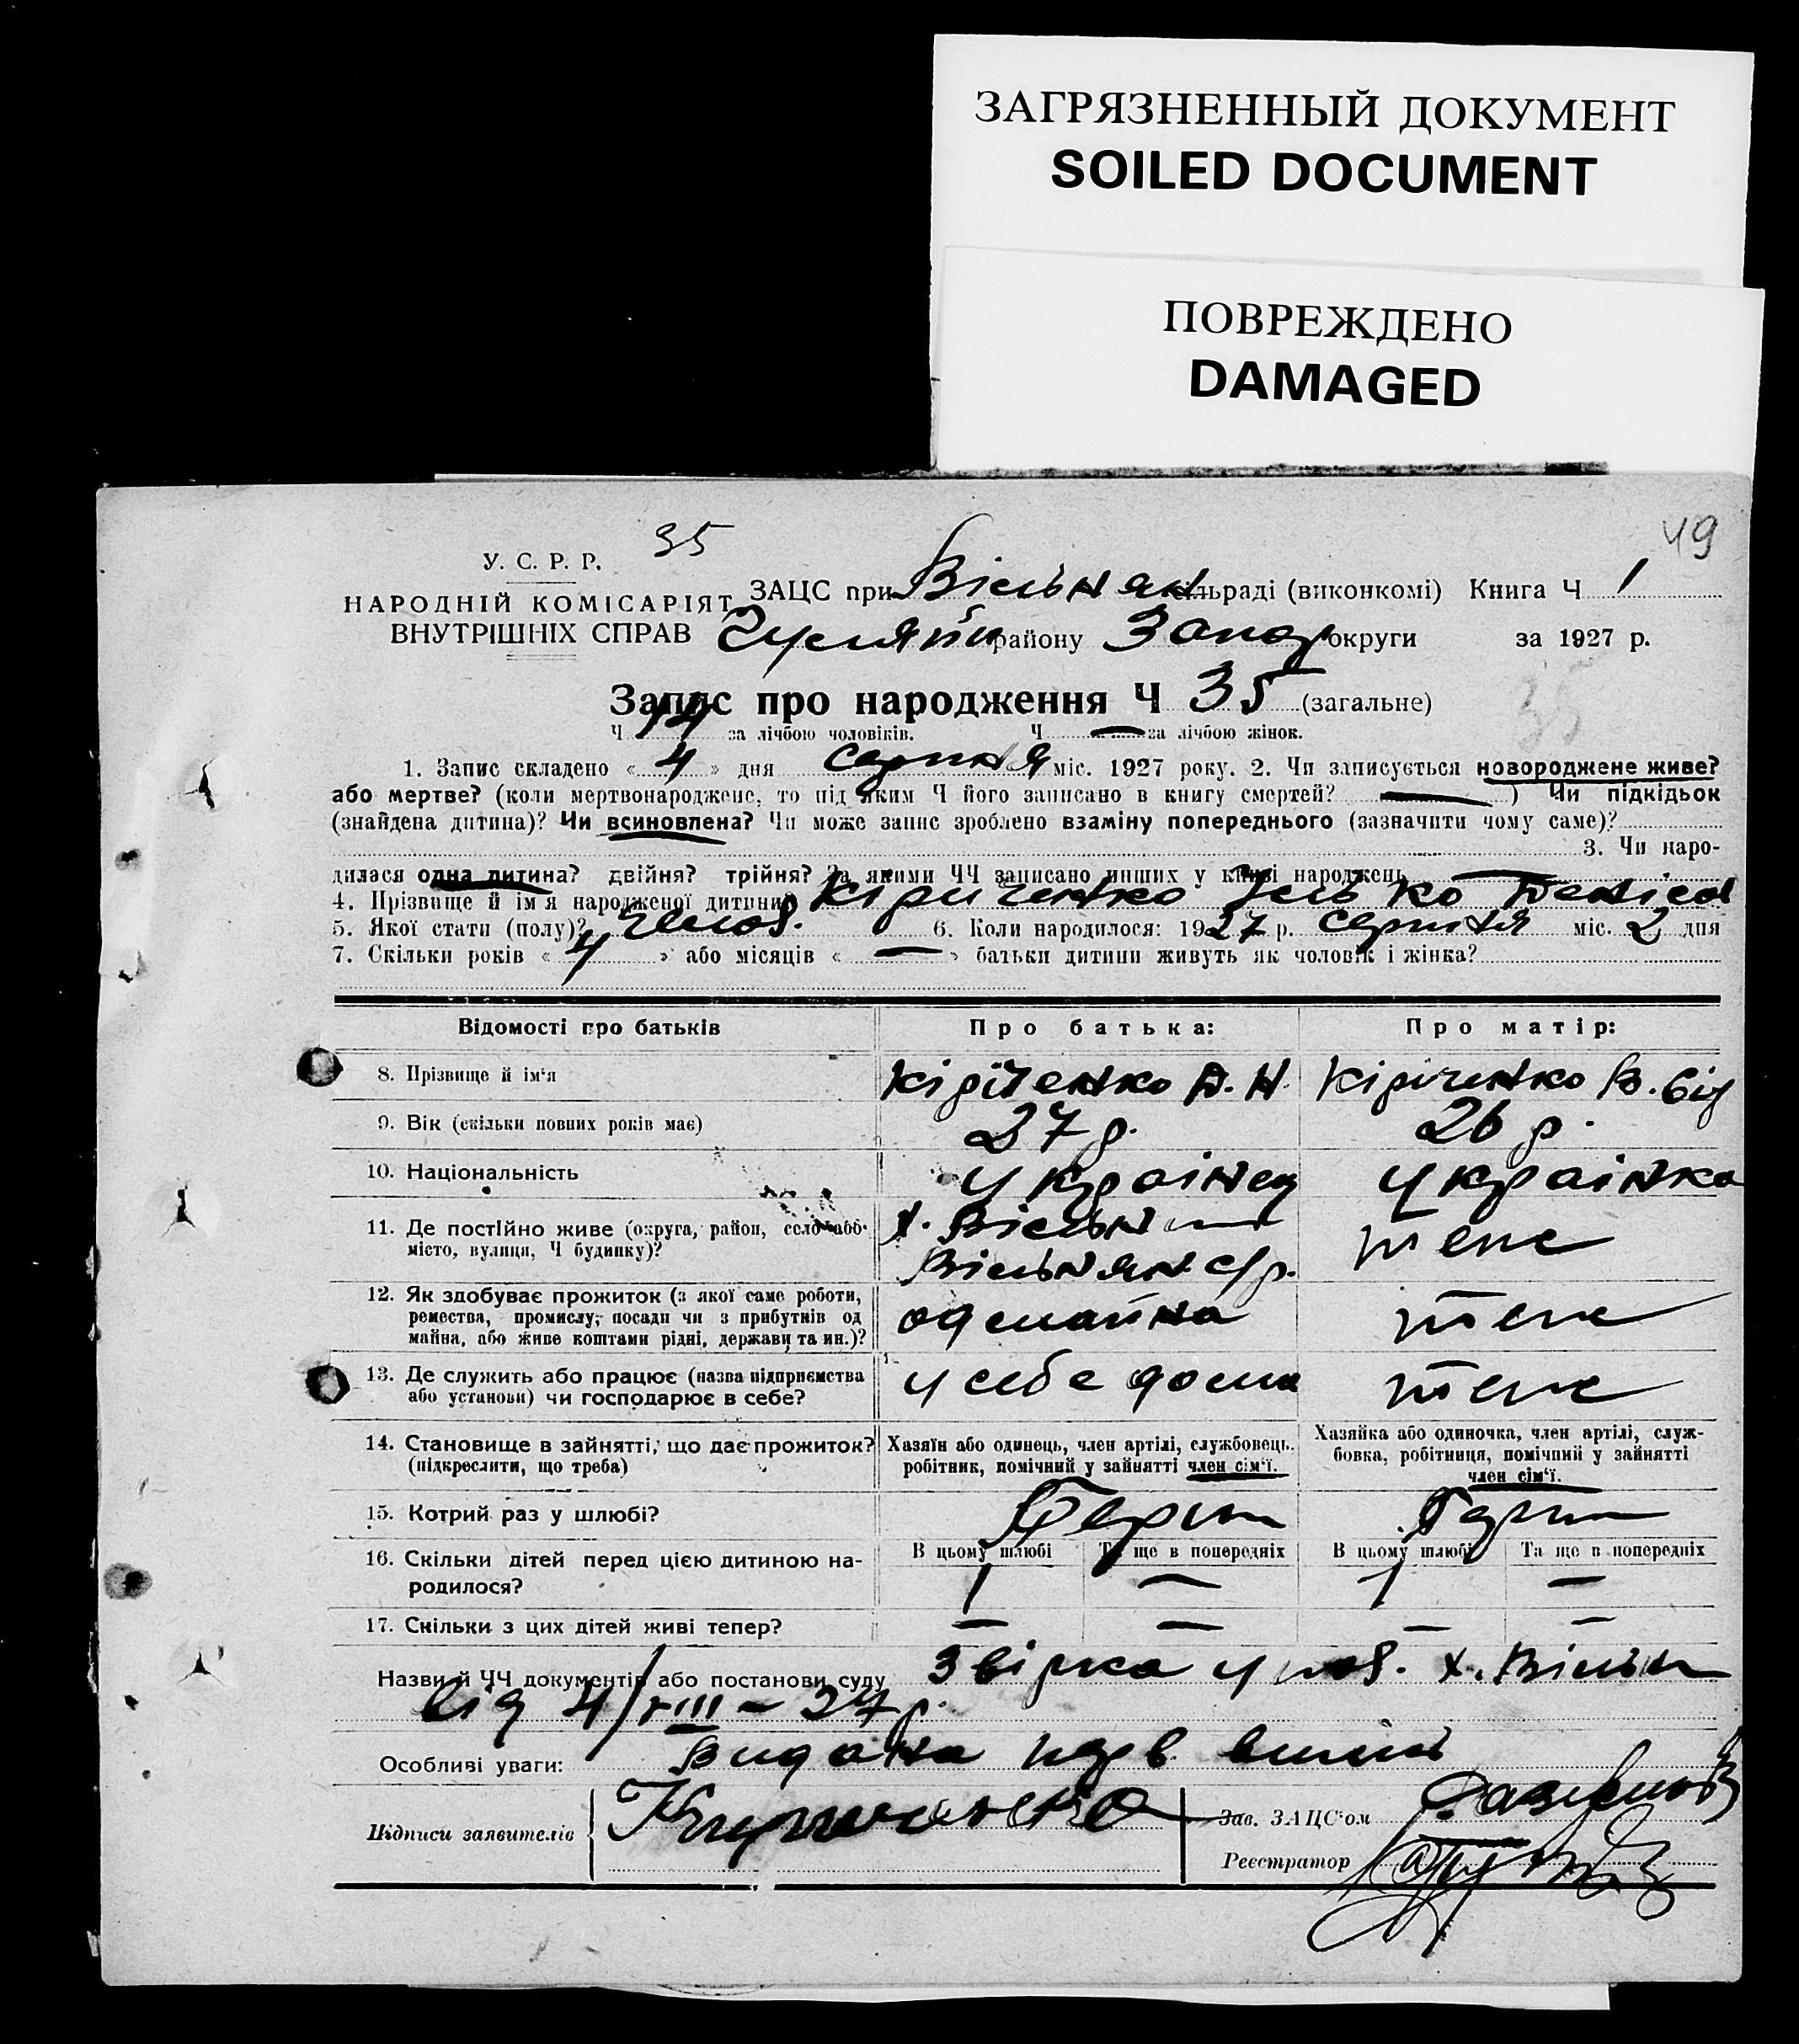 ЗАГРЯЗНЕННЫЙ ДОКУМЕНТ
SOILED DOCUMENT
ПОВРЕЖДЕНО
DAMAGED
35
49
У. С. Р. Р.
НАРОДНІЙ КОМІСАРІЯТ
ВНУТРІШНІХ СПРАВ
ЗАЦС при Вільнян сільраді (виконкомі) Книга Ч 1
району Запор округи за 1927 р.
Запис про народження Ч 35 (загальне)
35
Ч 14 за лічбою чоловіків. Ч — за лічбою жінок.
1. Запис складено « 4 » дня серпня міс. 1927 року. 2. Чи записується новороджене живе?
або мертве? (коли мертвонароджене, то під яким Ч його записано в книгу смертей? — ) Чи підкідьок
(знайдена дитина)? Чи всиновлена? Чи може запис зроблено взаміну попереднього (зазначити чому саме)?
3. Чи наро-
дилася одна дитина? двійня? трійня? За якими ЧЧ записано инших у книзі народжень —
4. Прізвище й ім'я народженої дитини? Кіриченко Ілько
5. Якої стати (полу)? чолов. 6. Коли народилося: 1927 р. серпня міс. 2 дня
7. Скільки років « 4 » або місяців « — » батьки дитини живуть як чоловік і жінка?
Відомості про батьків Про батька: Про матір:
8. Прізвище й ім'я Кіріченко Д. Н. Кіріченко В.
9. Вік (скільки повних років має) 27 р. 26 р.
10. Національність Українец Українка
11. Де постійно живе (округа, район, село або місто, вулиця, Ч будинку)? х. Вільн Вільнян с/р. теж
12. Як здобуває прожиток (з якої саме роботи, ремества, промислу, посади чи з прибутків од майна, або живе коштами рідні, держави та ин.)? од майна теж
13. Де служить або працює (назва підприємства або установи) чи господарює в себе? у себе дома теж
14. Становище в зайнятті, що дає прожиток? (підкреслити, що треба) Хазяїн або одинець, член артілі, службовець, робітник, помічний у зайнятті член сім'ї. Хазяйка або одиночка, член артілі, служ-бовка, робітниця, помічний у зайнятті член сім'ї.
15. Котрий раз у шлюбі? Перш Перш
16. Скільки дітей перед цією дитиною на-родилося? В цьому шлюбі Та ще в попередніх В цьому шлюбі Та ще в попередніх
1 — 1 —
17. Скільки з цих дітей живі тепер? — — — —
Назви й ЧЧ документів або постанови суду Звірка х. Вільн
від 4/VIII – 27 р.
Особливі уваги: Видана
Підписи заявителів Зав. ЗАЦС'ом
Реєстратор